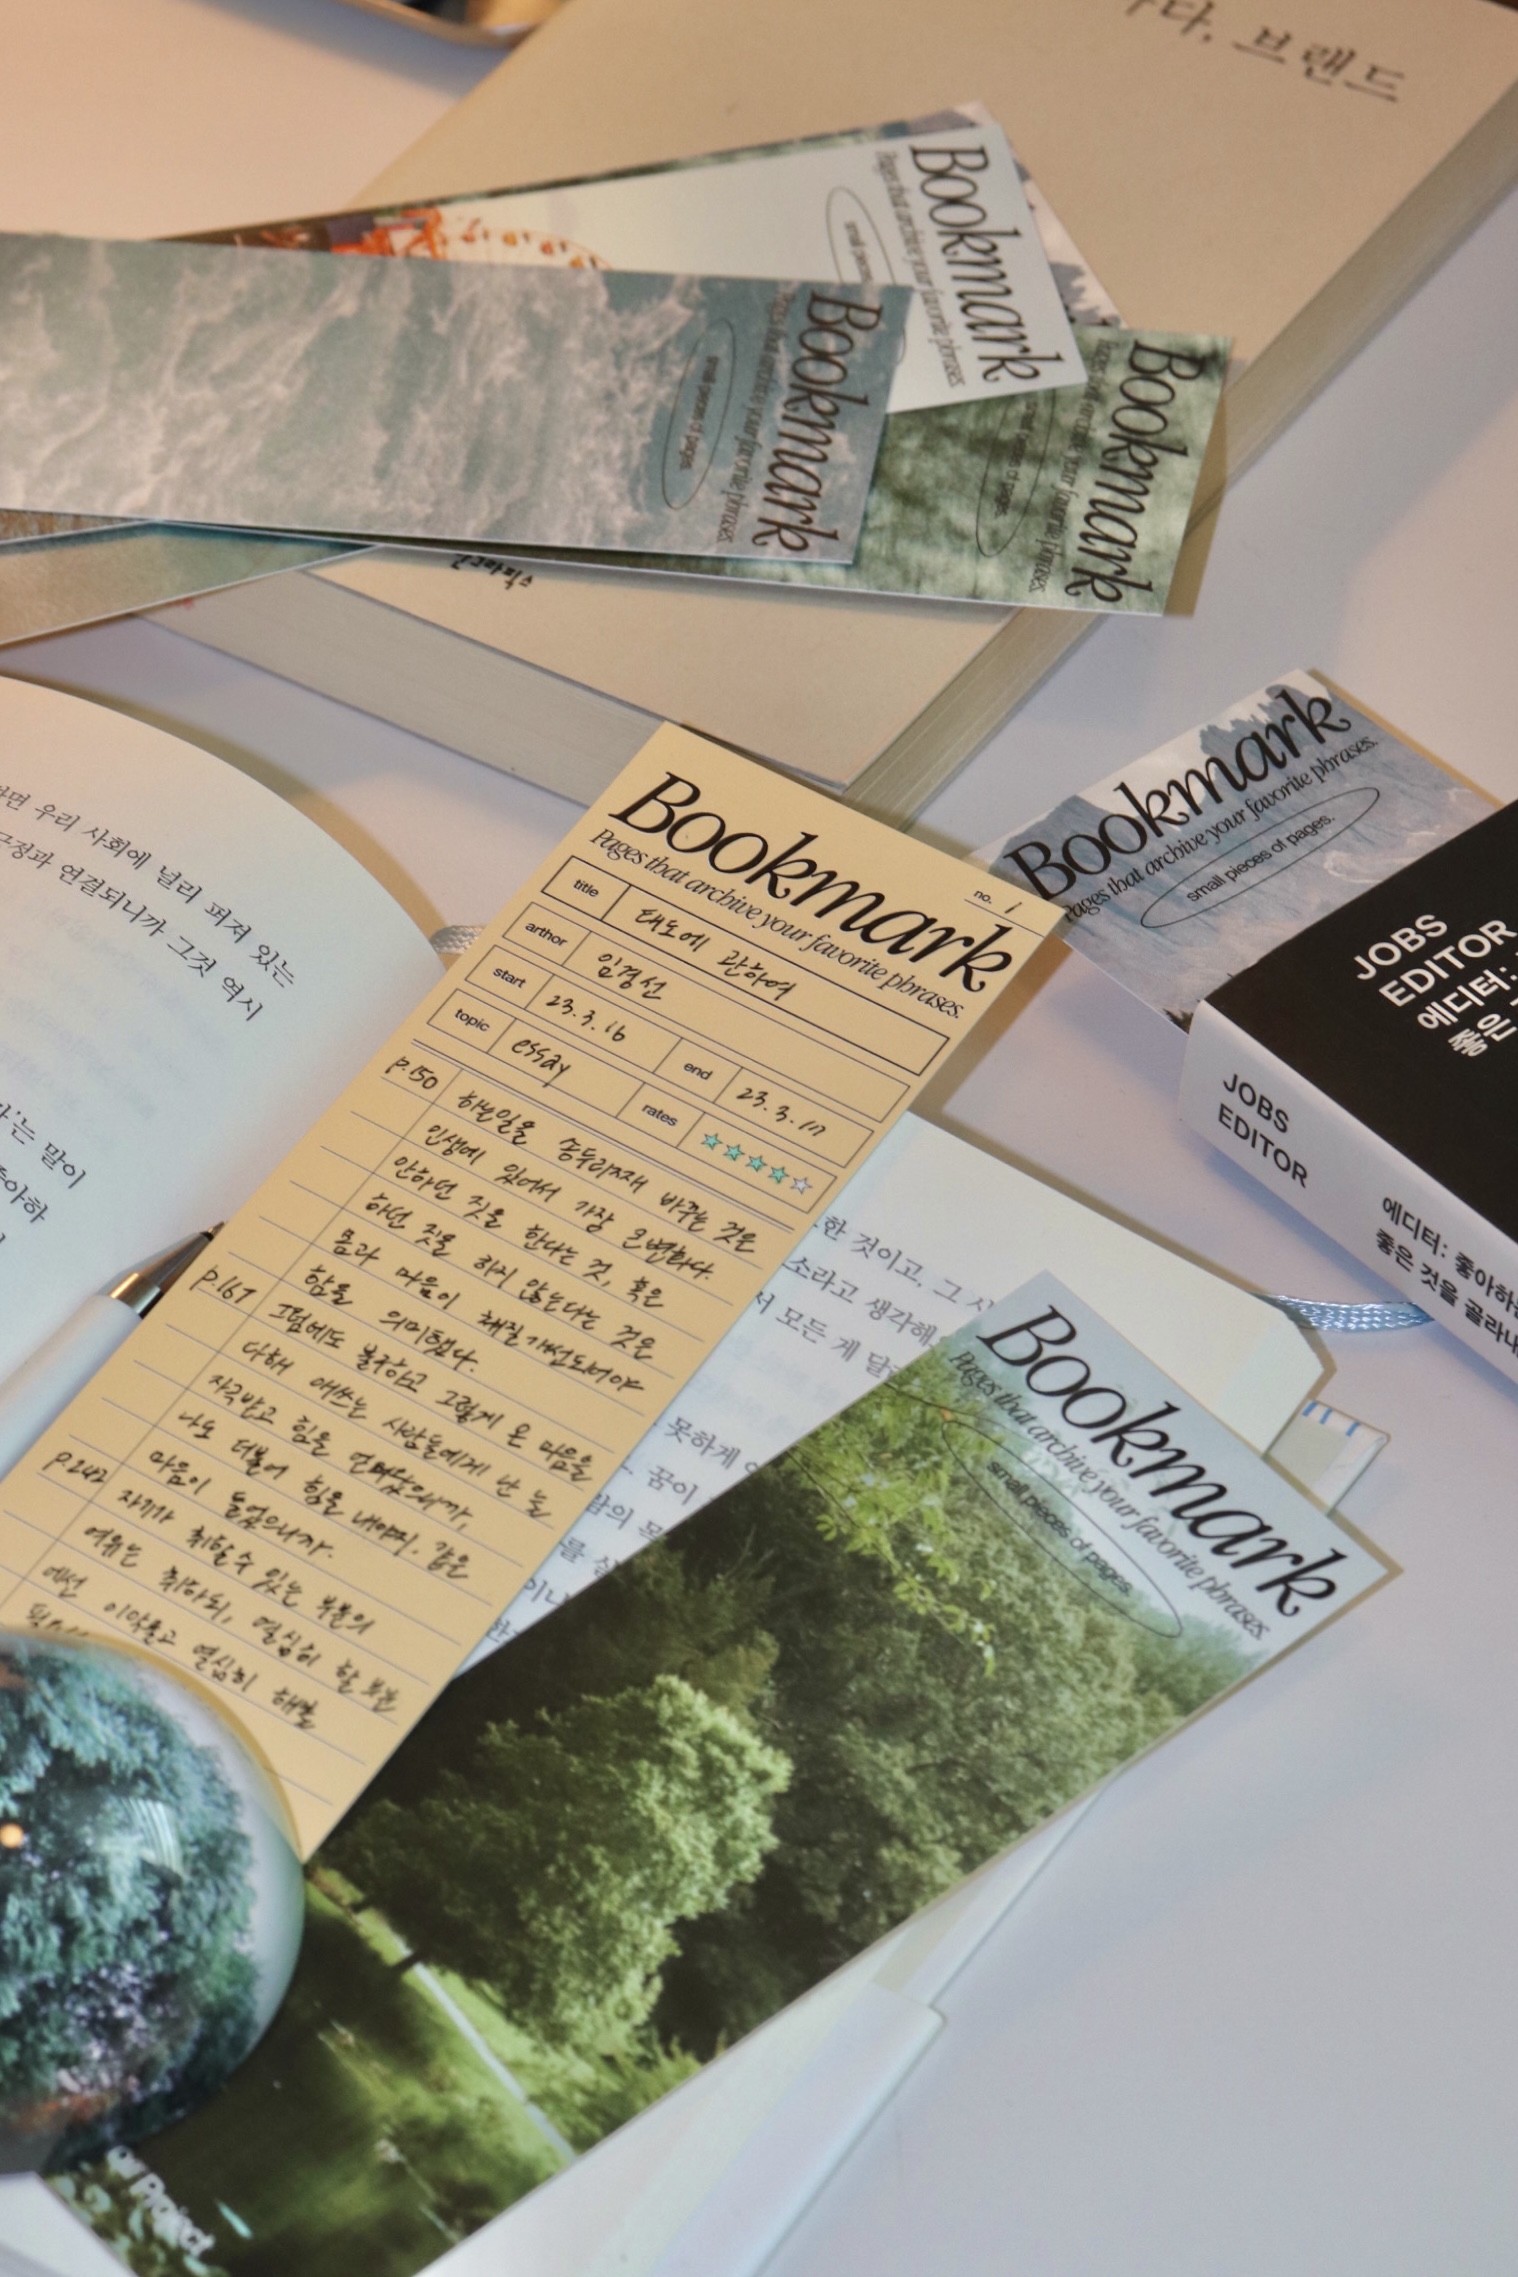 브랜드
Bookmark
Pages that archive your favorite phrases.
small pieces
Bookmark
Pages that archive your favorite phrases.
small pieces of pages.
Bookmark
Pages that archive your favorite phrases.
small pieces of pages.
Bookmark
Pages that archive your favorite phrases.
small pieces of pages.
JOBS
EDITOR
에디터:
JOBS
EDITOR
에디터: 좋아하는
좋은 것을 골라내
우리 사회에 널리 퍼져 있는
연결되니까 그것 역시
는 말이
no. 1
Bookmark
Pages that archive your favorite phrases.
title 태도에 관하여
arthor 임경선
start 23.3.16 end 23.3.17
topic essay rates
p.150 하는일을 송두리째 바꾸는 것은
인생에 있어서 가장 큰변화다.
안하던 짓을 한다는 것, 혹은
하던 짓을 하지 않는다는 것은
몸과 마음이 체질개선되어야
함을 의미했다.
p.167 그럼에도 불구하고 그렇게 온 마음을
다해 애쓰는 사람들에게 난 늘
자극받고 힘을 얻어왔으니까,
나도 더불어 힘을 내야지. 같은
마음이 들었으니까.
p.242 자기가 취할 수 있는 부분의
여유는 취하되, 열심히 할 부분
에선 이악물고 열심히 해볼
한 것이고, 그
소라고 생각해
서 모든 게
못하게
꿈이
Bookmark
Pages that archive your favorite phrases.
small pieces of pages.
Project